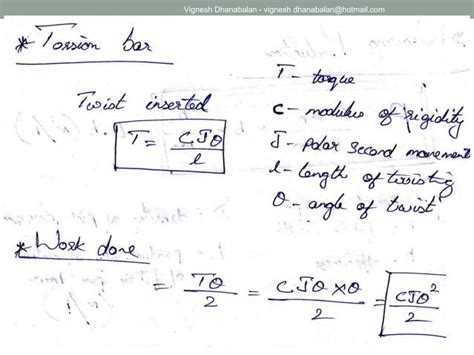 Vignesh Dhanabalan - vignesh dhanabalan@hotmail.com
* Torsion bar
Twist inserted
T = CJθ / l
T - torque
C - modulus of rigidity
J - Polar second movement
l - length of twisting
θ - angle of twist
* Work done
= Tθ/2 = CJθ×θ/2 = CJθ²/2